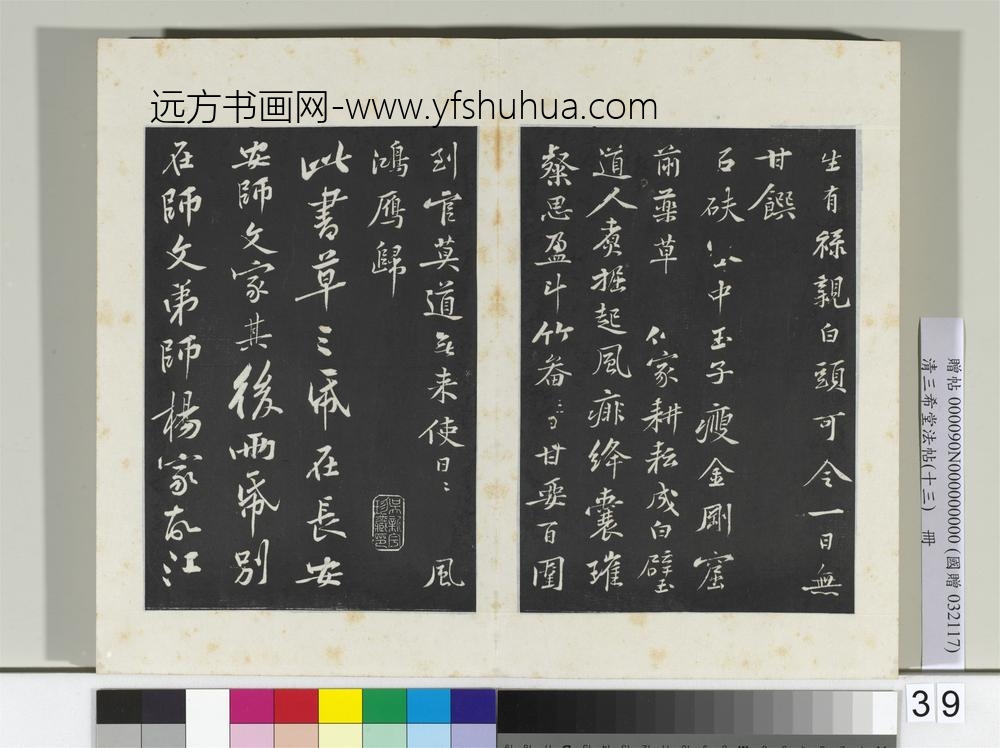 远方书画网-www.yfshuhua.com
生有祿親白頭可令一日無
甘饌
石砆公中玉子瘦金剛窟
前藥草　仙家耕耘成白璧
道人煮掘起風痱絳囊璀
粲思盈斗竹畚㇀㇀甘要百圍
到官莫道無來使日㇀　風
鴻鴈歸
此書草三紙在長安
安師文家其後兩紙別
在師文弟師楊家故江
贈帖 000090N000000000 (國贈 032117)
清三希堂法帖(十三)　冊
39